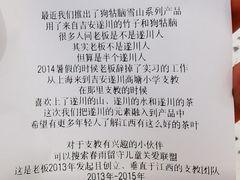 最近我们推出了狗牯脑雪山系列产品
用了来自吉安遂川的竹子和狗牯脑
很多人问老板是不是遂川人
其实老板不是遂川人
但算是半个遂川人
2014暑假的时候老板辞掉了实习的工作
从上海来到吉安遂川高塘小学支教
在那里支教的时候
喜欢上了遂川的山、水和遂川的茶
这次我们把遂川的元素融入到产品中
希望有更多年轻人了解江西有这么好的茶叶
对于支教有兴趣的小伙伴
可以搜索春雨留守儿童关爱联盟
这是老板2013年发起且创立、垂直于江西的支教团队
2013年-2015年